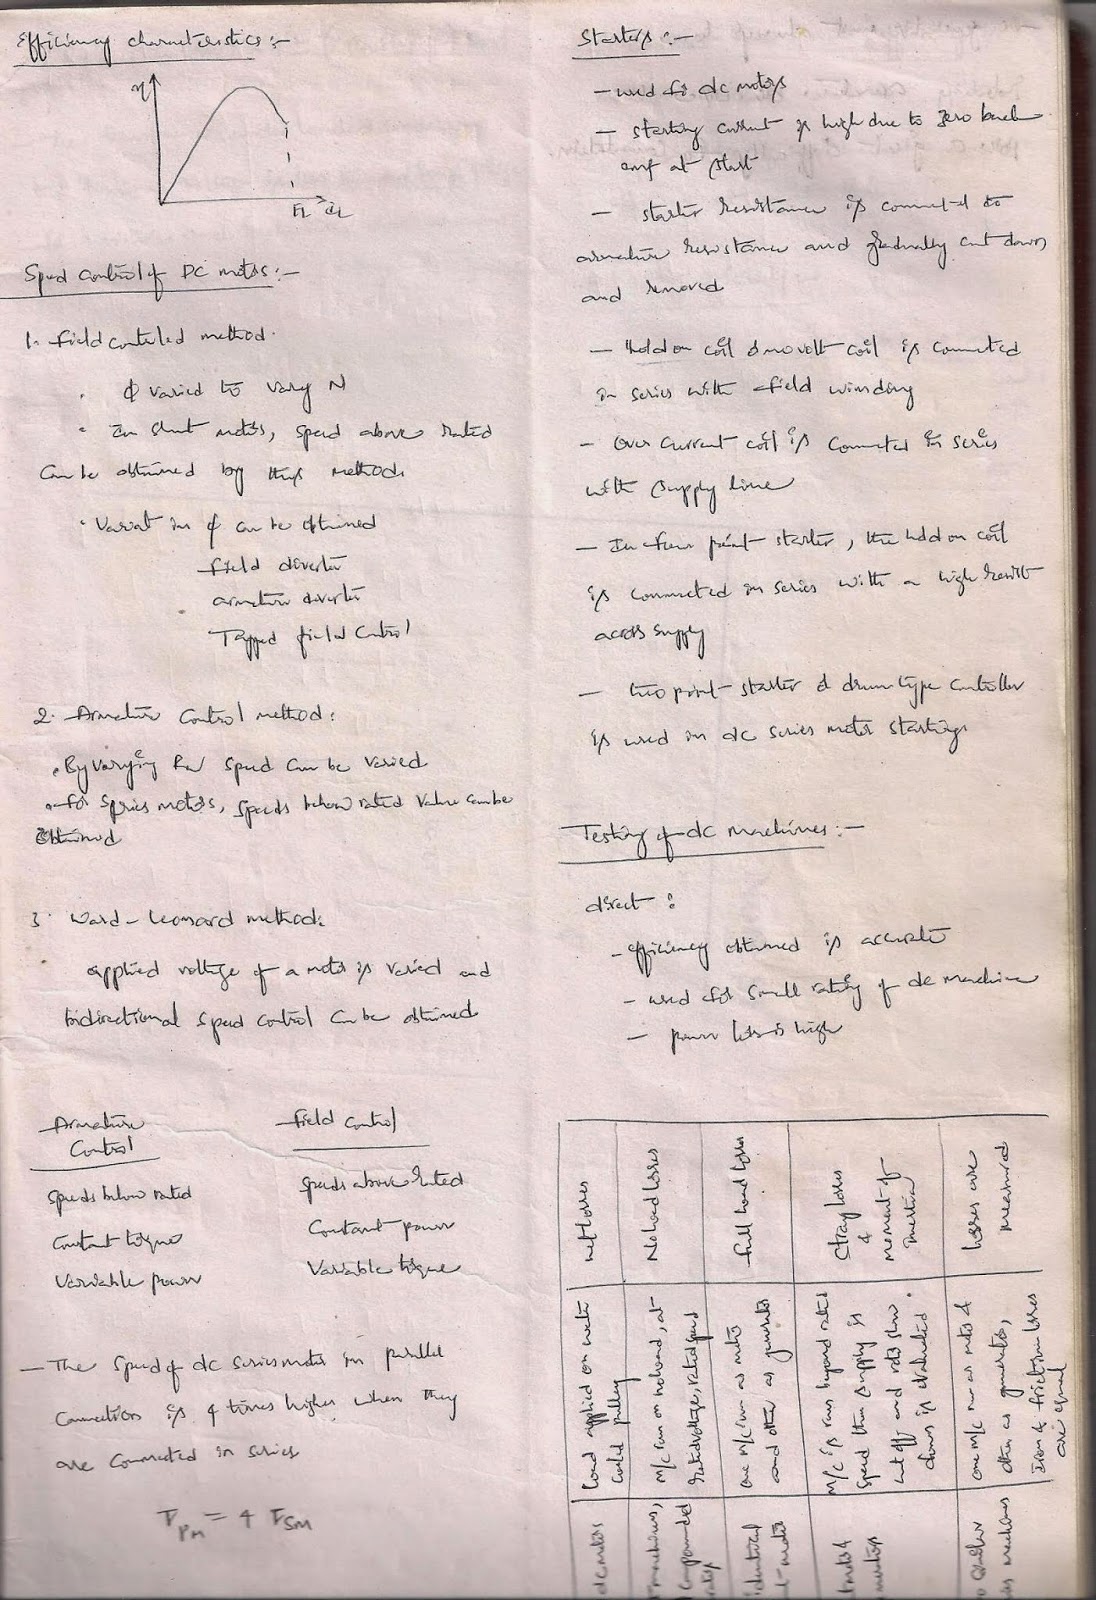 Efficiency characteristics :-
η
FL IL
Speed control of DC motors :-
1. Field controlled method.
. φ varied to vary N
. In shunt motors, speed above rated
can be obtained by this method.
. Variat in φ can be obtained
field diverter
armature diverter
Tapped field control
2. Armature control method :
. By varying Ra speed can be varied
. for series motors, speeds below rated value can be
obtained
3. Ward-Leonard method.
applied voltage of a motor is varied and
bidirectional speed control can be obtained
Armature Control
Field control
Speeds below rated
Speeds above rated
Constant torque
Constant power
Variable power
Variable torque
- The speed of dc series motor in parallel
connection is 4 times higher when they
are connected in series
= 4
Starters :-
- used for dc motors
- starting current is high due to zero back
emf at start
- starter resistance is connected to
armature resistance and gradually cut down
and removed
- Hold on coil & no volt coil is connected
in series with field winding
- Over current coil is connected in series
with supply line
- In four point starter, the hold on coil
is connected in series with a high resist
across supply
- two point starter & drum type controller
is used in dc series motor startings
Testing of dc machines :-
direct :
- efficiency obtained is accurate
- used for small rating of dc machine
- power loss is high
net losses
No load losses
full load losses
Stray losses
&
moment of
Inertia
losses are
measured
load applied on water
cooled pulley
M/c run on no load, at
rated voltage, rated speed
one m/c run as motor
and other as generator
M/C is run beyond rated
speed then supply is
cut off and rotor slow
down is evaluated.
one m/c run as motor &
other as generator,
Iron & friction losses
are equal
dc motors
machines,
compounded
identical
machines